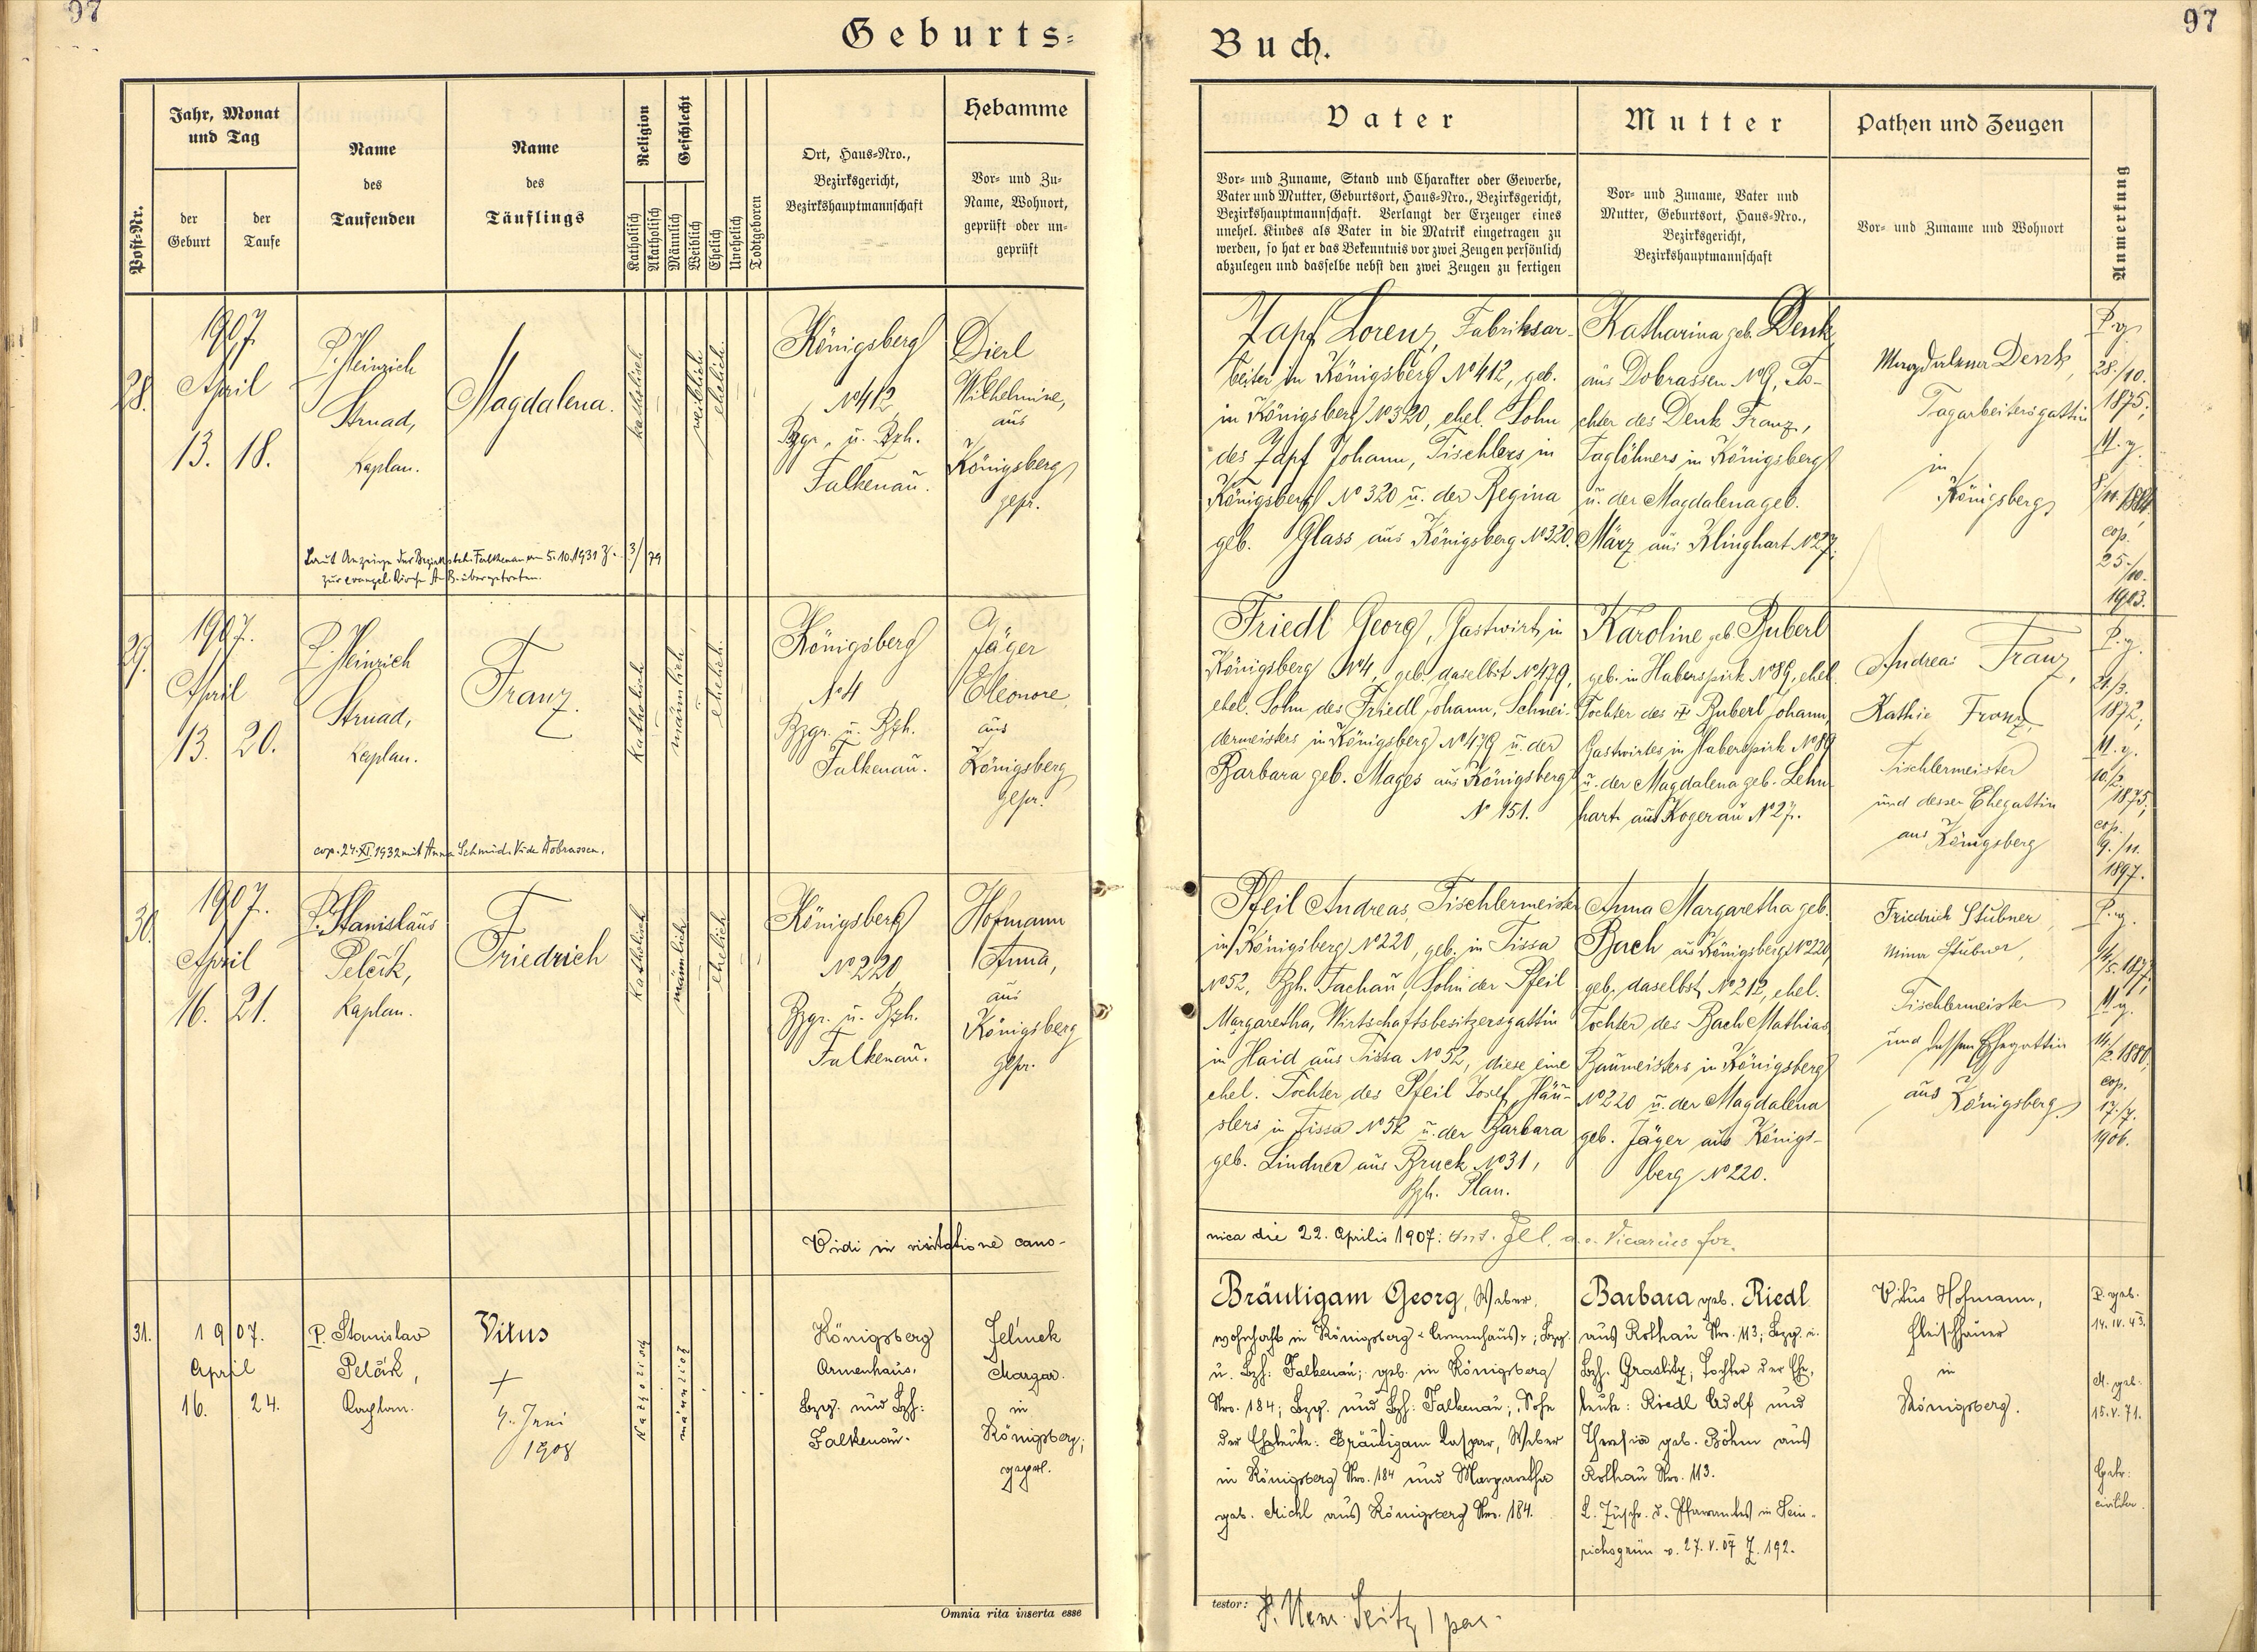 97
97
Geburts=
Buch.
Post-Nr.
Jahr, Monat
und Tag
der
Geburt
der
Taufe
Name
des
Taufenden
Name
des
Täuflings
Religion
Katholisch
Akatholisch
Geschlecht
Männlich
Weiblich
Ehelich
Unehelich
Todtgeboren
Ort, Haus-Nro.,
Bezirksgericht,
Bezirkshauptmannschaft
Hebamme
Vor- und Zu-
Name, Wohnort,
geprüft oder un-
geprüft
Vater
Vor- und Zuname, Stand und Charakter oder Gewerbe,
Vater und Mutter, Geburtsort, Haus-Nro., Bezirksgericht,
Bezirkshauptmannschaft. Verlangt der Erzeuger eines
unehel. Kindes als Vater in die Matrik eingetragen zu
werden, so hat er das Bekenntnis vor zwei Zeugen persönlich
abzulegen und dasselbe nebst den zwei Zeugen zu fertigen
Mutter
Vor- und Zuname, Vater und
Mutter, Geburtsort, Haus-Nro.,
Bezirksgericht,
Bezirkshauptmannschaft
Pathen und Zeugen
Vor- und Zuname und Wohnort
Anmerkung
28.
1907.
April
13. 18.
P. Heinrich
Strnad,
Kaplan.
Magdalena.
katholisch
weiblich
ehelich.
Königsberg
No 412
Bzgr. u. Bzh.
Falkenau.
Dierl
Wilhelmine,
aus
Königsberg
gepr.
Zapf Lorenz, Fabriksar-
beiter in Königsberg No 412, geb.
in Königsberg No 320, ehel. Sohn
des Zapf Johann, Tischlers in
Königsberg No 320 u. der Regina
geb. Glass aus Königsberg No 320.
Katharina geb. Denk
aus Dobrassen No 9, To-
chter des Denk Franz,
Taglöhners in Königsberg
u. der Magdalena geb.
März aus Klinghart No 27.
Magdalena Denk,
Tagarbeitersgattin
in
Königsberg
P. g.
28./10.
1875;
M. g.
cop.
25./10.
1903.
Laut Anzeige der Bezirksbeh. Falkenau vom 5.10.1931 Z. 3/79
zur evangel. Kirche A. B. übergetreten.
29.
1907.
April
13. 20.
P. Heinrich
Strnad,
Kaplan.
Franz.
katholisch
männlich
ehelich.
Königsberg
No 4
Bzgr. u. Bzh.
Falkenau.
Jäger
Eleonore
aus
Königsberg
gepr.
Friedl Georg, Gastwirt in
Königsberg No 4, geb. daselbst No 479,
ehel. Sohn des Friedl Johann, Schnei-
dermeisters in Königsberg No 479 u. der
Barbara geb. Mages aus Königsberg
No 151.
Karoline geb. Ruberl
geb. in Haberspirk No 89, ehel.
Tochter des Ruberl Johann,
Gastwirtes in Haberspirk No 89
u. der Magdalena geb. Lehn-
hart aus Kogerau No 27.
Andreas Franz,
Kathie Franz,
Tischlermeister
und dessen Ehegattin
aus Königsberg
P. g.
21./3.
1872;
M. g.
10./2.
1875;
cop.
9./11.
1897.
cop. 24. XI. 1932 mit Anna Schmid. Vide Dobrassen.
30.
1907.
April
16. 21.
P. Stanislaus
Pelčik,
Kaplan.
Friedrich
katholisch
männlich
ehelich
Königsberg
No 220
Bzgr. u. Bzh.
Falkenau.
Hofmann
Anna,
aus
Königsberg
gepr.
Pfeil Andreas, Tischlermeister
in Königsberg No 220, geb. in Tissa
No 52, Bzh. Tachau, Sohn der Pfeil
Margaretha, Wirtschaftsbesitzersgattin
in Haid aus Tissa No 52, diese eine
ehel. Tochter des Pfeil Josef, Häu-
slers in Tissa No 52 u. der Barbara
geb. Lindner aus Bruck No 31,
Bzh. Plan.
Anna Margaretha geb.
Bach aus Königsberg No 220
geb. daselbst No 212, ehel.
Tochter des Bach Mathias
Baumeisters in Königsberg
No 220 u. der Magdalena
geb. Jäger aus Königs-
berg No 220.
Friedrich Stubner,
Mina Stubner,
Tischlermeister
und dessen Ehegattin
aus Königsberg
P. g.
14./5. 1877;
M. g.
14./2. 1880;
cop.
17./7.
1906.
Vidi in visitatione cano-
nica die 22. Aprilis 1907: Ant. Vicarius for.
31.
1907.
April
16. 24.
P. Stanislav
Pelčik,
Kaplan.
Vitus
†
4. Juni
1908
Katholisch
männlich
Königsberg
Armenhaus,
Bzg. und Bzh:
Falkenau.
Jelinek
Margar.
in
Königsberg;
geprf.
Bräutigam Georg, Weber,
wohnhaft in Königsberg "Armenhaus"; Bzg.
u. Bzh: Falkenau; geb. in Königsberg
Nro. 184; Bzg. und Bzh: Falkenau; Sohn
der Eheleute: Bräutigam Kaspar, Weber
in Königsberg Nro. 184 und Margaretha
geb. Michl aus Königsberg Nro. 184.
Barbara geb. Riedl
aus Rothau Nro. 113; Bzg. u.
Bzh. Graslitz; Tochter der Ehe-
leute: Riedl Adolf und
Theresia geb. Böhm aus
Rothau Nro. 113.
L. Zuschr. d. Pfarramtes in Hein-
richsgrün v. 27. V. 07 Z. 192.
Vitus Hofmann,
Fleischhauer
in
Königsberg.
P. geb.
14. IV. 43.
M. geb.
15. V. 71.
Getr.
civiliter.
Omnia rita inserta esse
testor:
P. Wenz. Seitz, par.